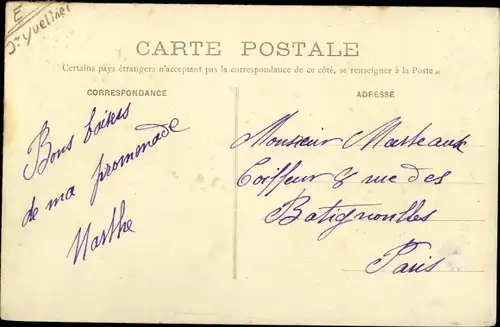 E
Yvelines
CARTE POSTALE
Certains pays étrangers n'acceptent pas la correspondance de ce côté, se renseigner à la Poste
CORRESPONDANCE
Bons baisers
de ma promenade
Marthe
ADRESSE
Monsieur Marteaux
Coiffeur 8 rue des
Batignolles
Paris